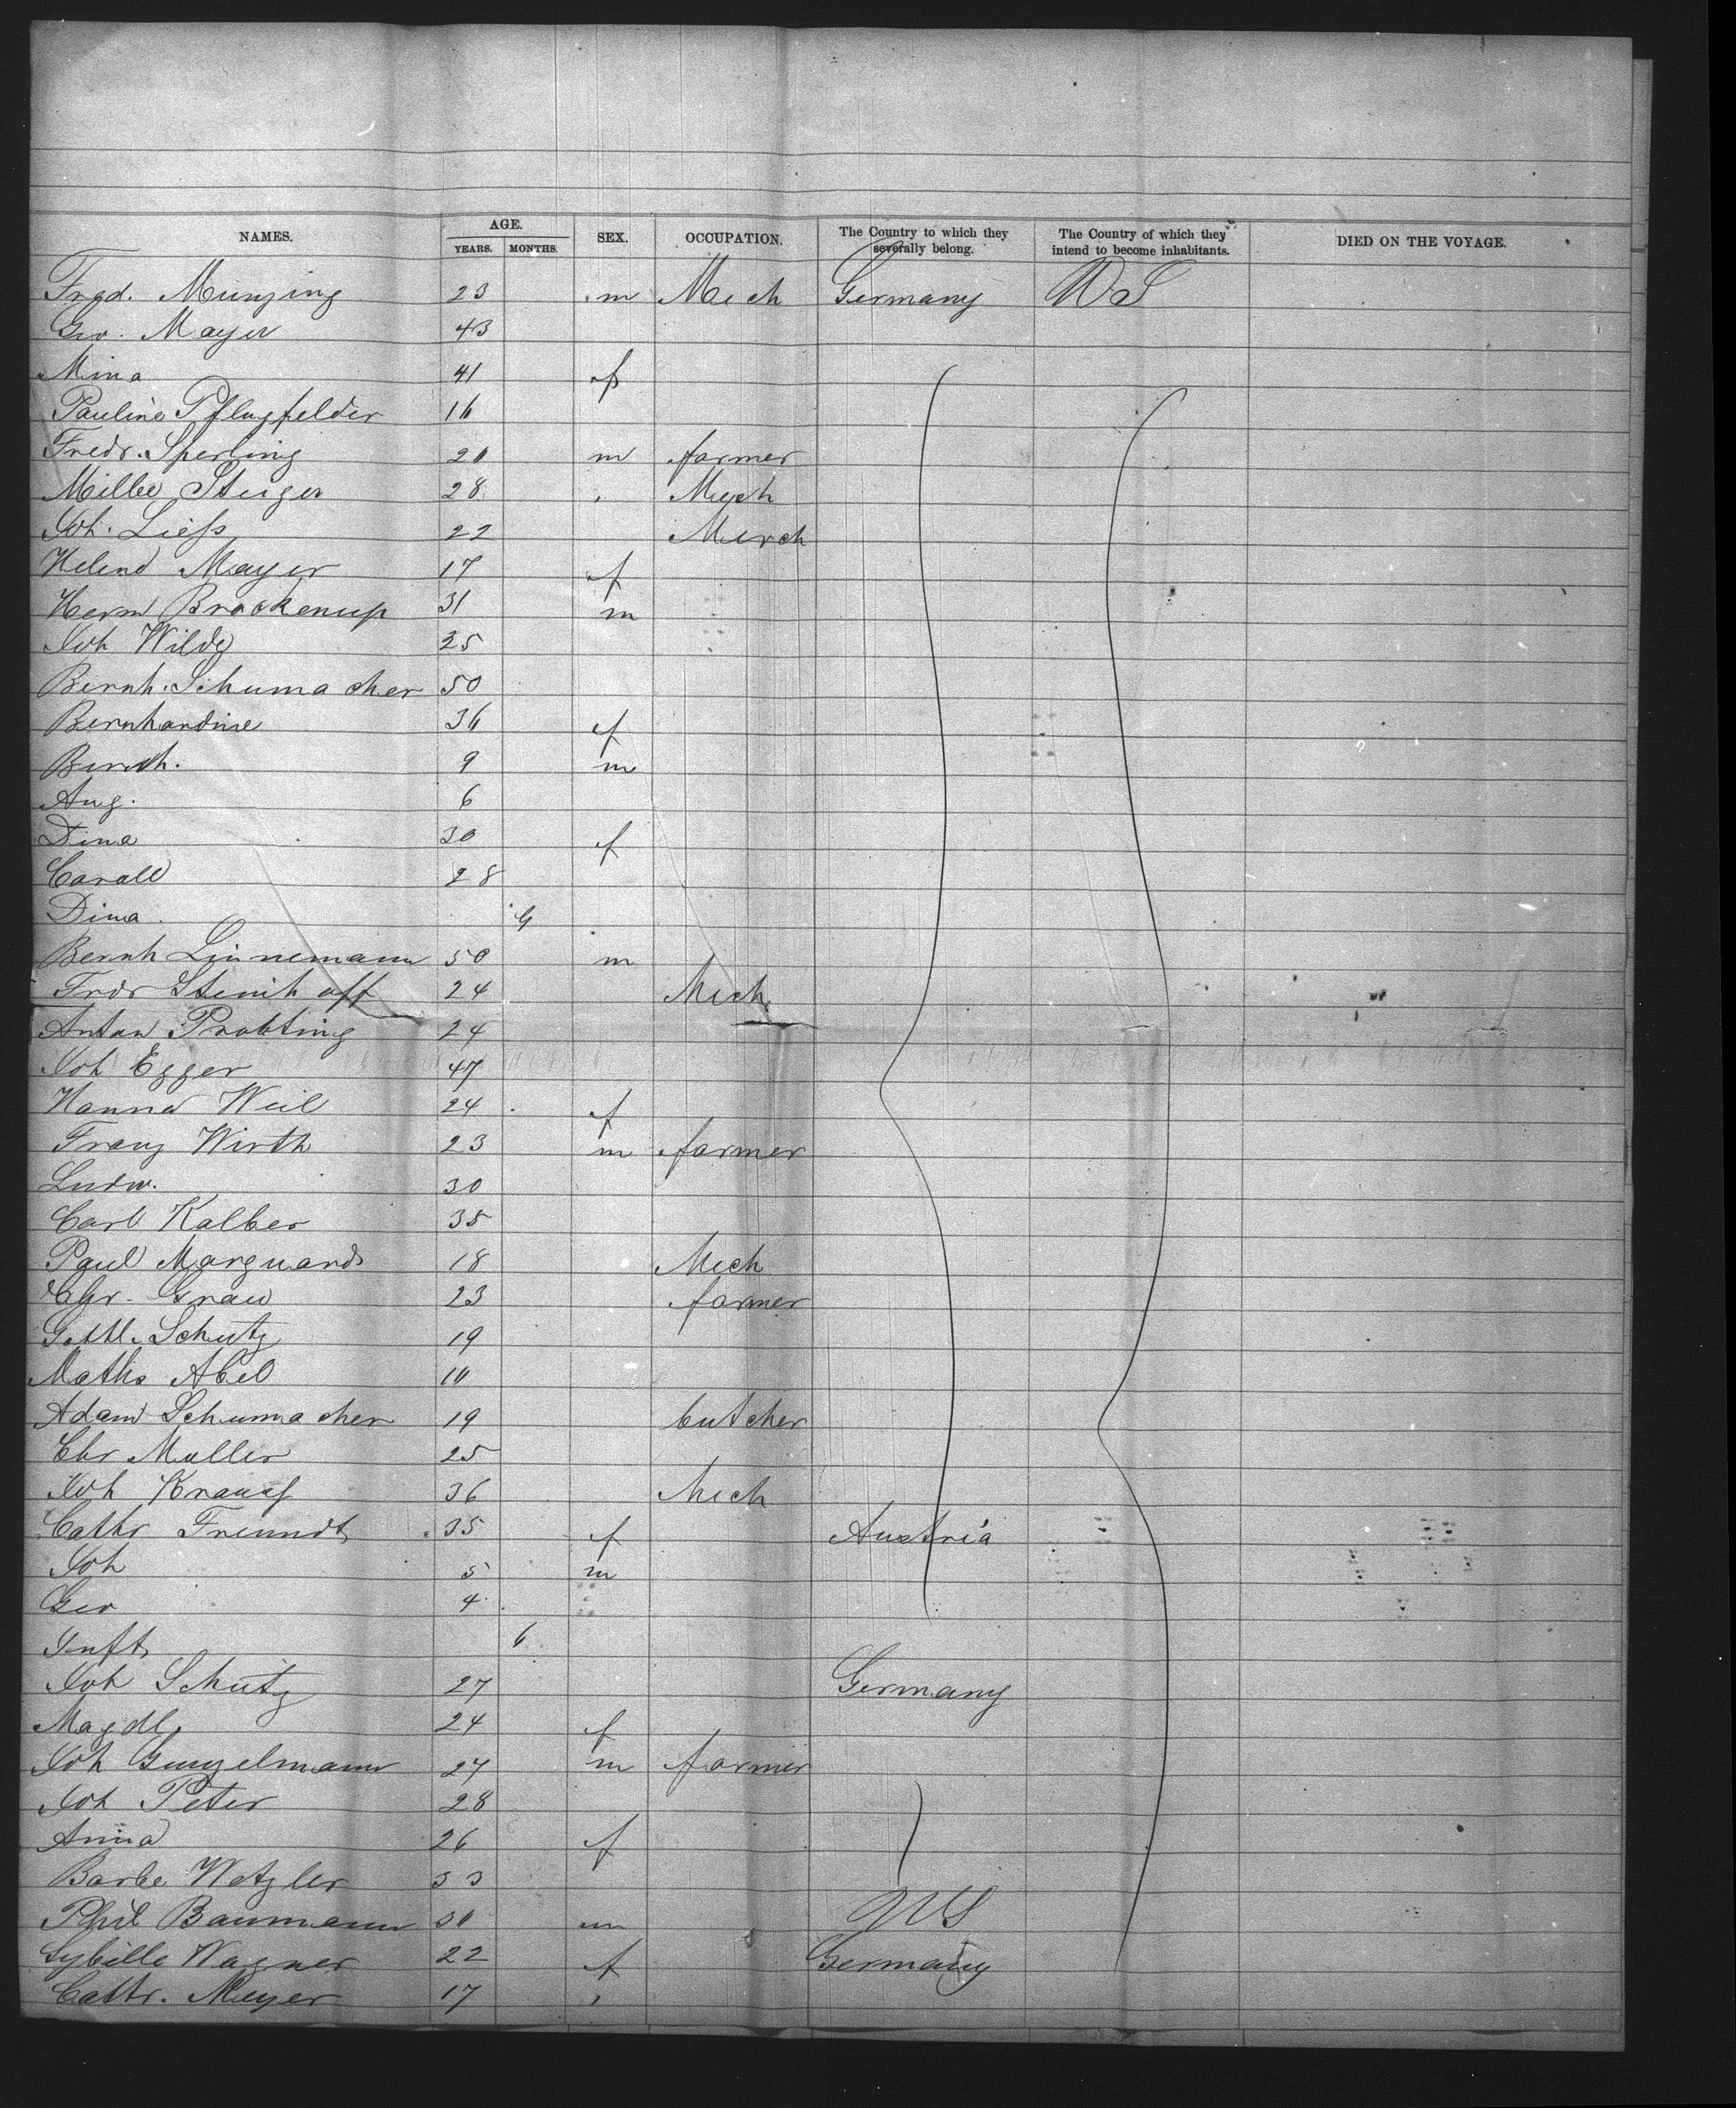 NAMES. AGE. SEX. OCCUPATION. The Country to which they severally belong. The Country of which they intend to become inhabitants. DIED ON THE VOYAGE.
YEARS. MONTHS.
Fred. Munzing 23 m Mech Germany US
Geo. Mayer 43
Mina 41 f
Pauline Pflugfelder 16
Fredr. Sperling 20 m farmer
Steiger 28 Mech
Joh. Liess 22 Merch
Helena Mayer 17 f
Herm 31 m
Joh Wilde 25
Bernh. Schumacher 50
Bernhardine 36 f
Bernh. 9 m
Aug. 6
Dina 30 f
28
Dina 9
Bernh Linnemann 50 m
Fredr 24 Mech
Anton Probting 24
Joh Egger 47
Hanna Weil 24 f
Franz Wirth 23 m farmer
Ludw. 30
Carl Kalber 35
Paul Marquard 18 Mech
Chr. Grau 23 farmer
Gottl. Schutz 19
Maths Abel
Adam Schumacher 19 butcher
Chr Muller 25
Joh Krauss 36 Mech
Cathr Freundt 35 f Austria
Joh 5 m
Geo 4
Inft 6
Joh Schutz 27 Germany
Magdl 24 f
Joh Gunzelmann 27 m farmer
Joh Peter 28
Anna 26 f
Barbe Wetzler 33
Phil Baumann 30 m US
Sybille Wagner 22 f Germany
Cathr. Meyer 17